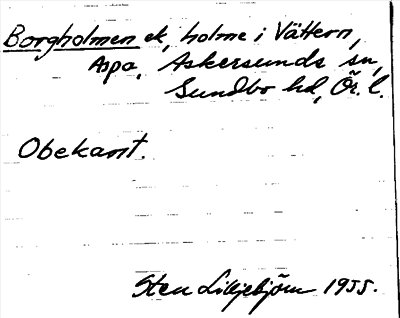 Borgholmen ek, holme i Vättern,
Aspa, Askersunds sn,
Sundbo hd, Ör. l.
Obekant.
Sten Liljebjörn 1955.